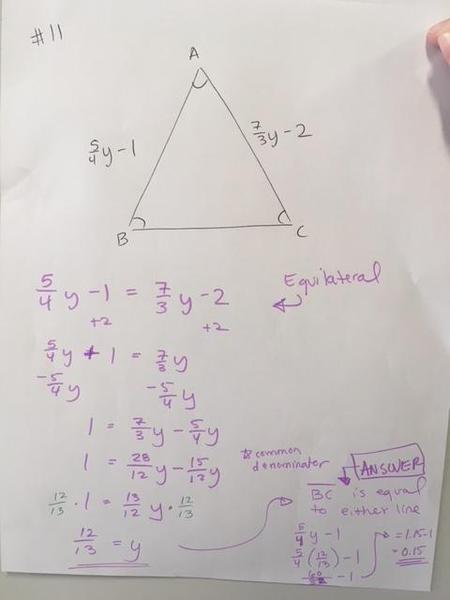 #11
A
5/4 y - 1
7/3 y - 2
B
C
Equilateral
5/4 y - 1 = 7/3 y - 2
+2 +2
5/4 y + 1 = 7/3 y
-5/4 y -5/4 y
1 = 7/3 y - 5/4 y
1 = 28/12 y - 15/12 y
* common denominator
12/13 · 1 = 13/12 y · 12/13
12/13 = y
ANSWER
BC is equal
to either line
5/4 y - 1
5/4 (12/13) - 1
- 1
= 1.15 - 1
= 0.15